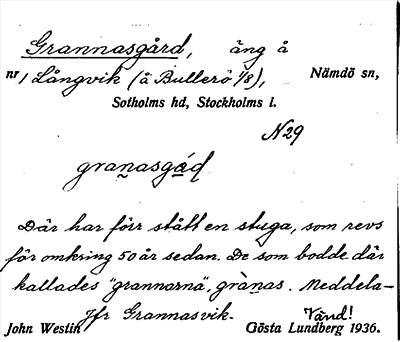 Grannasgård, äng å
nr 1 Långvik (å Bullerö 1/8), Nämdö sn,
Sotholms hd, Stockholms l.
N29
granasgáḍ
Där har förr stått en stuga, som revs
för omkring 50 år sedan. De som bodde där
kallades "grannarna", gràn̥as. Meddela-
Jfr Grannasvik. Vänd!
John Westin Gösta Lundberg 1936.